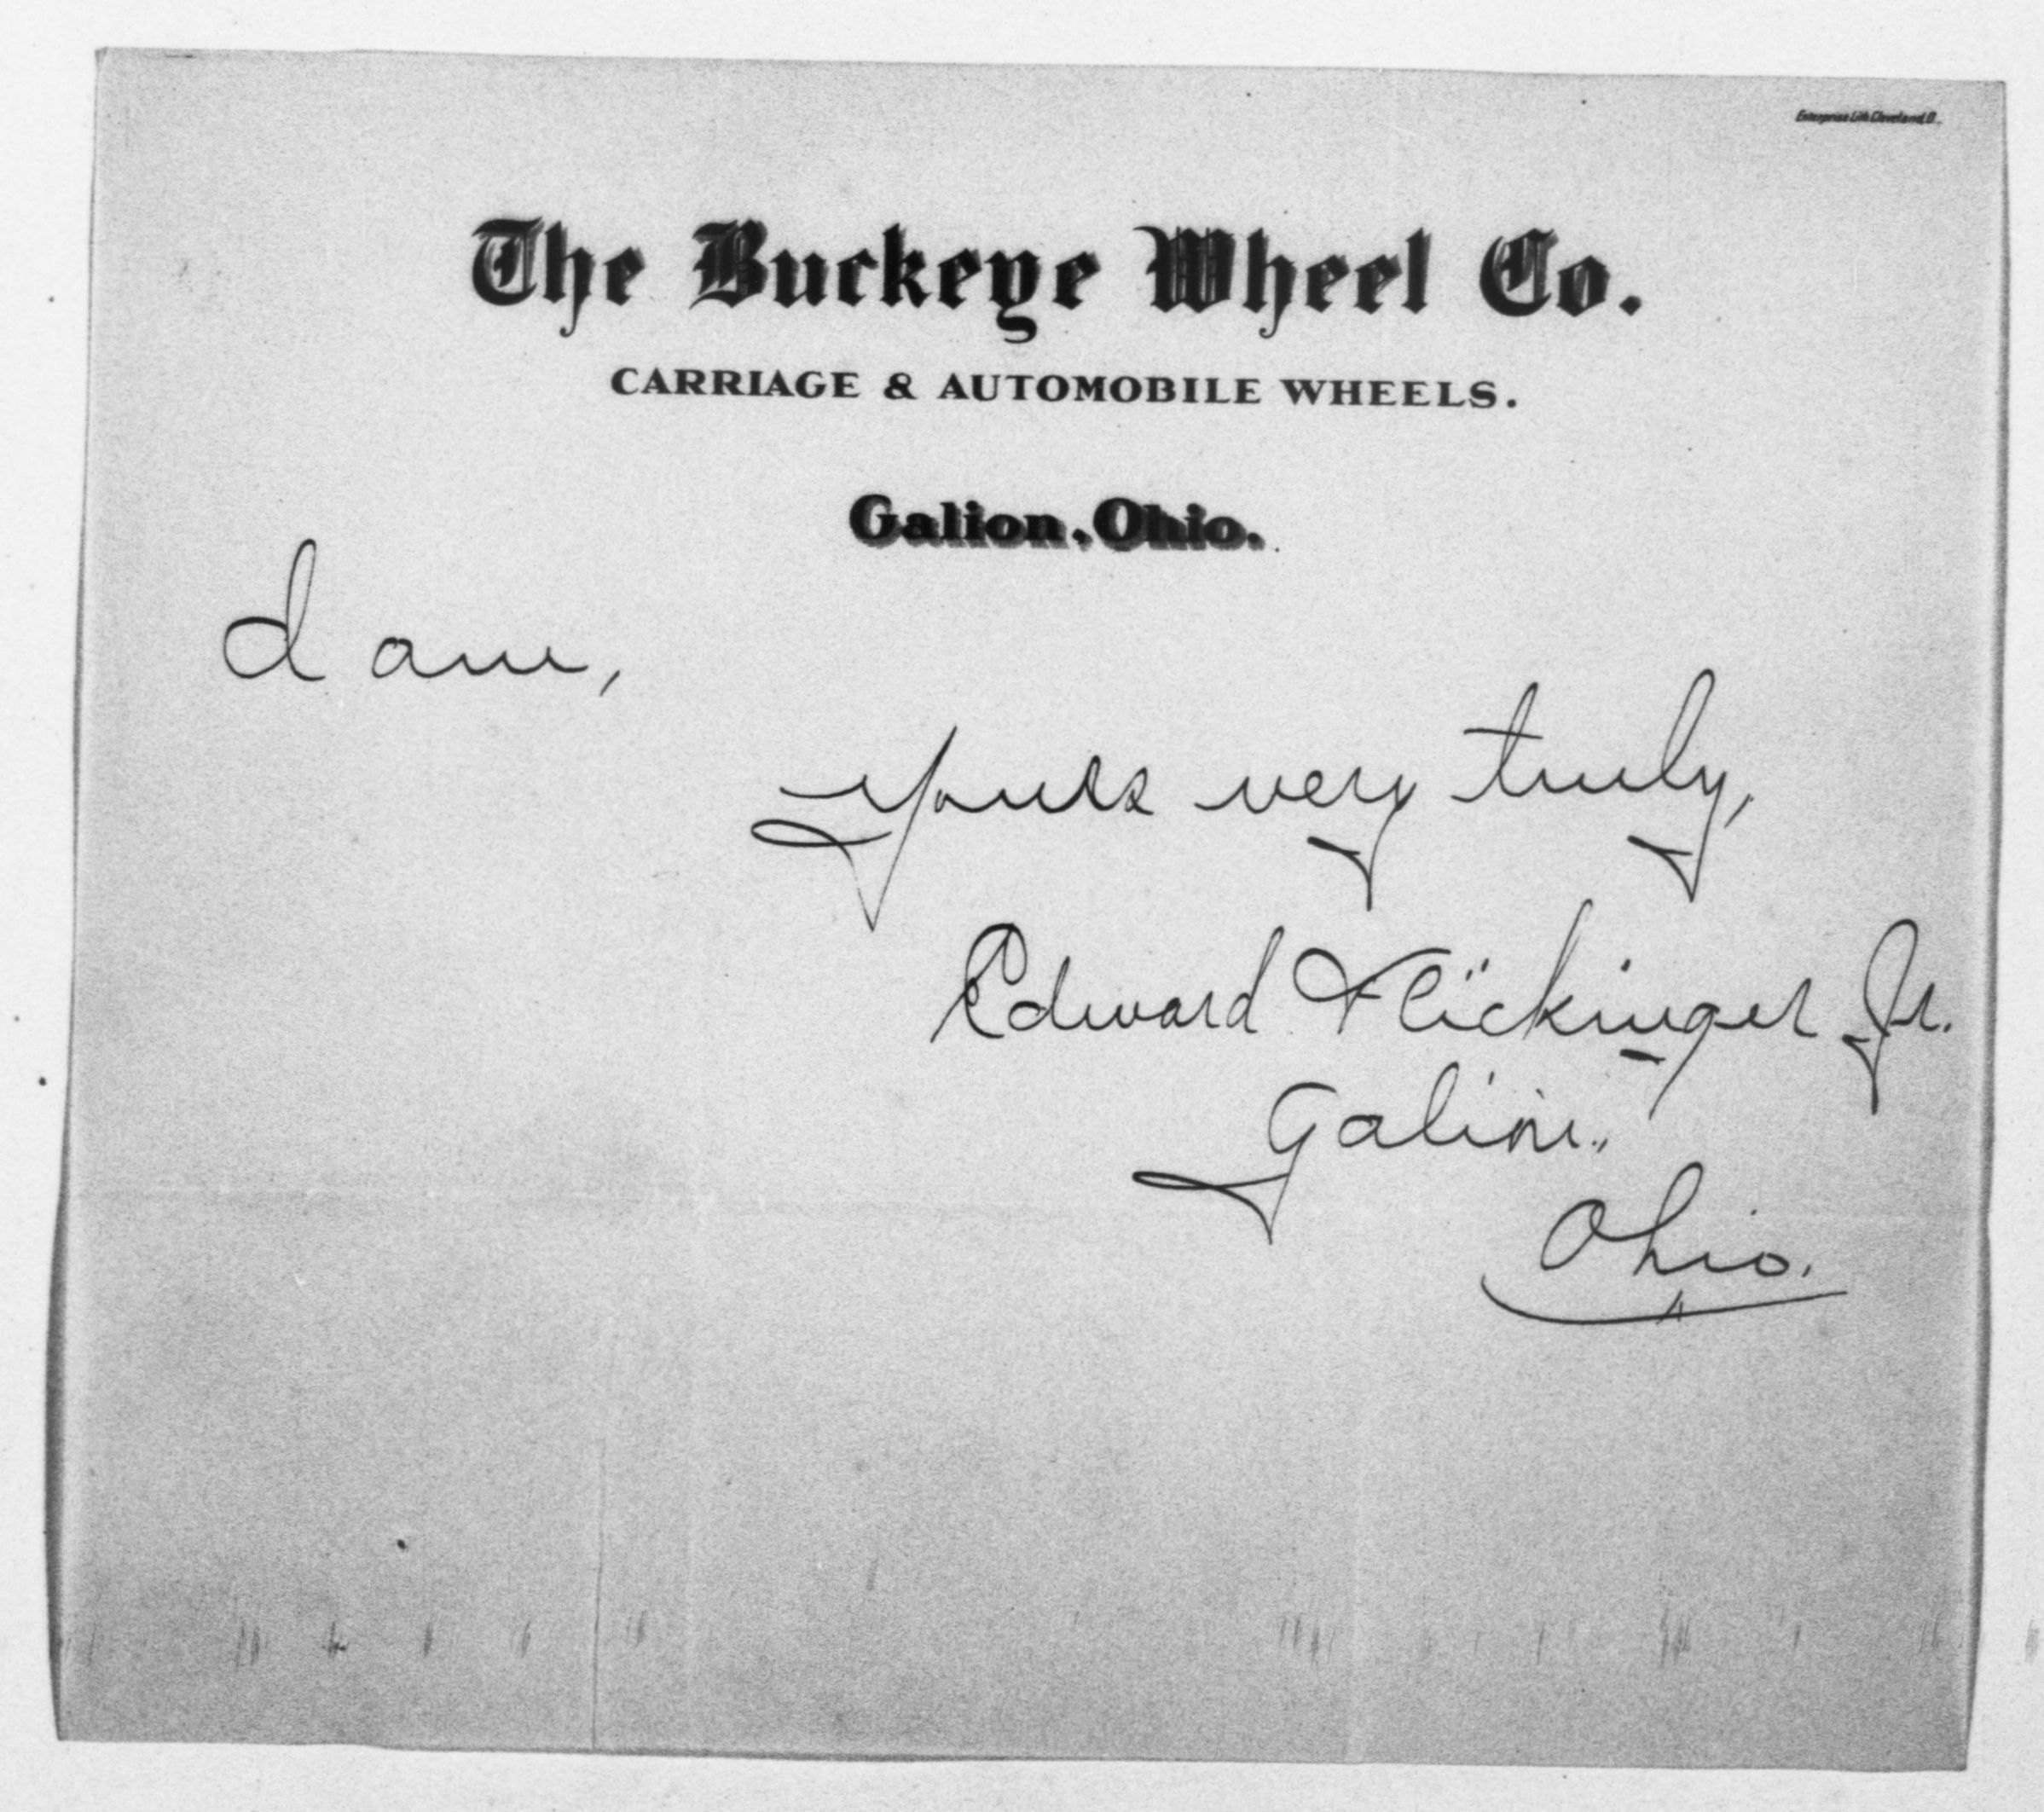 Enterprise Lith Cleveland, O.
The Buckeye Wheel Co.
CARRIAGE & AUTOMOBILE WHEELS.
Galion, Ohio.
I am,
yours very truly,
Edward Flickinger Jr.
Galion,
Ohio.